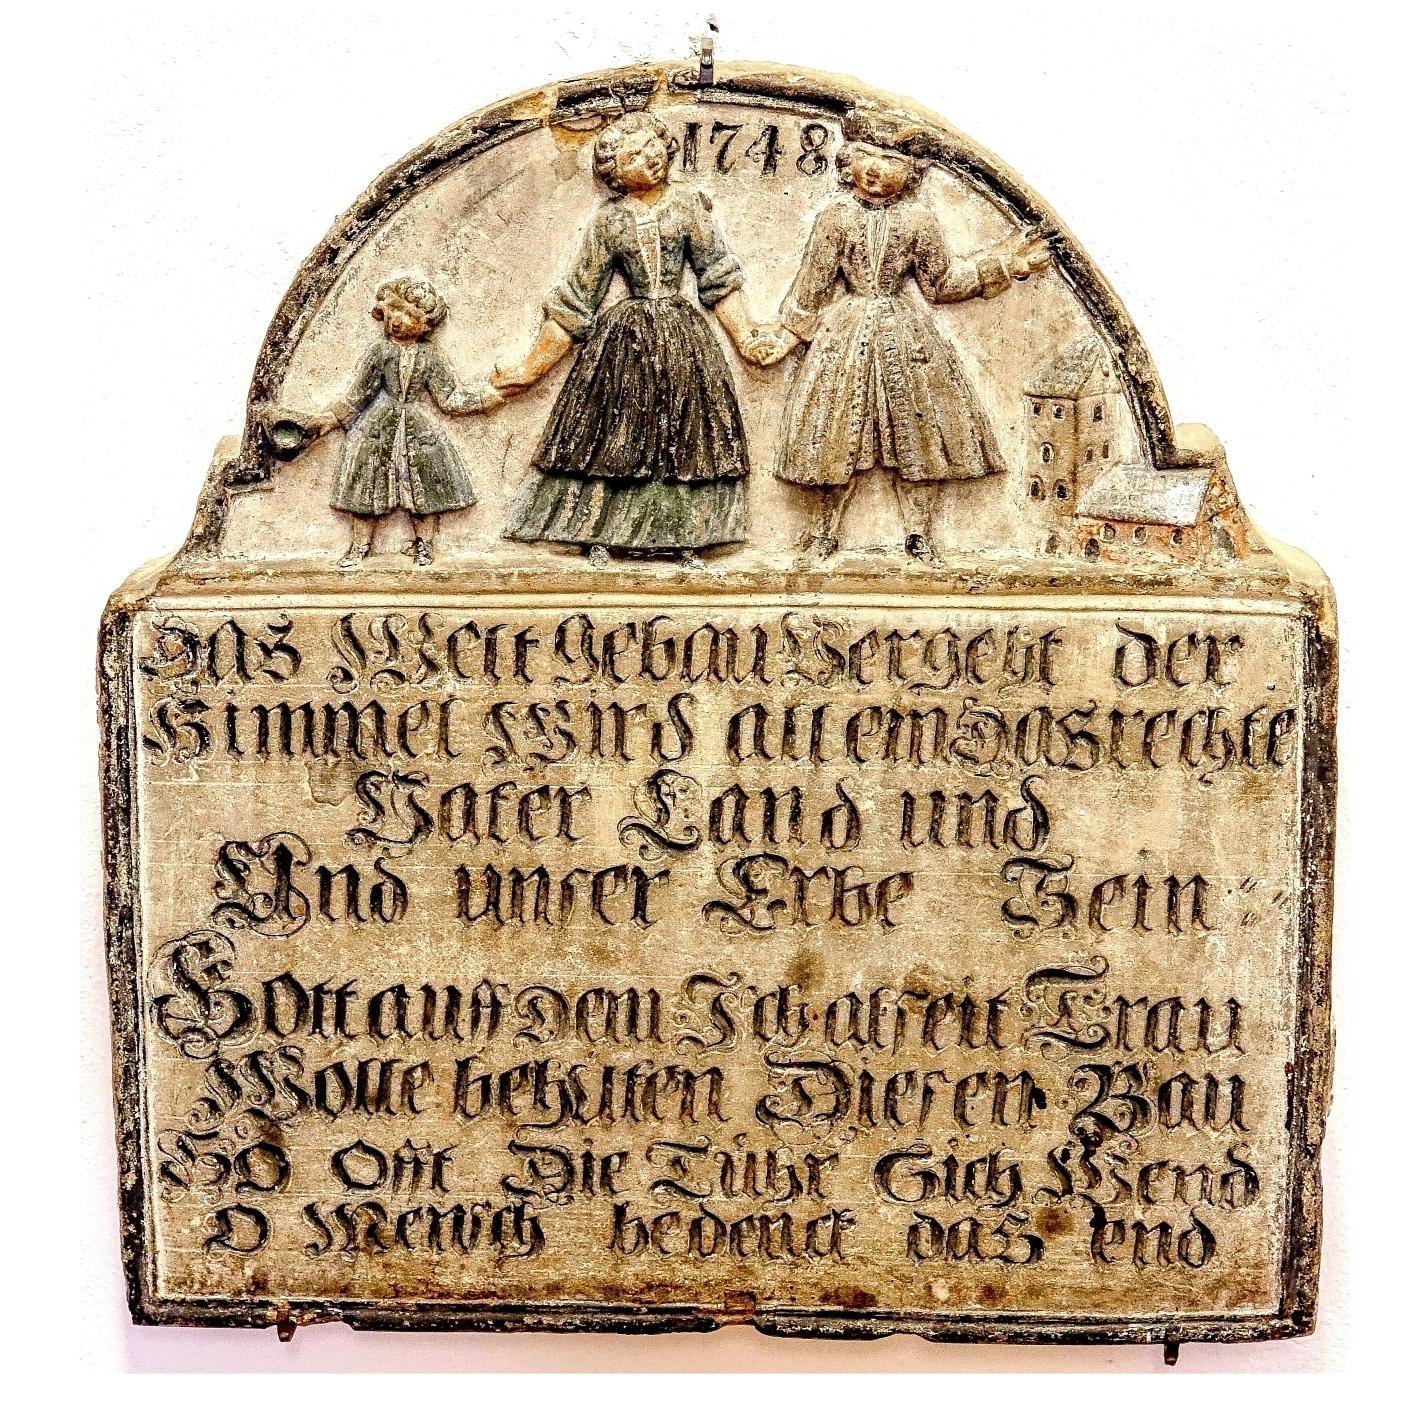 1748
Das Welt gebau Vergeht der
Himmel Wird allein Das rechte
Vater Land und
Und unser Erbe Sein
Gott auff Dem Ich alſeit Trau
Wolle behuten Dieſen Bau
SO Offt Die Tühr Sich Wend
O Mensch bedenck das end